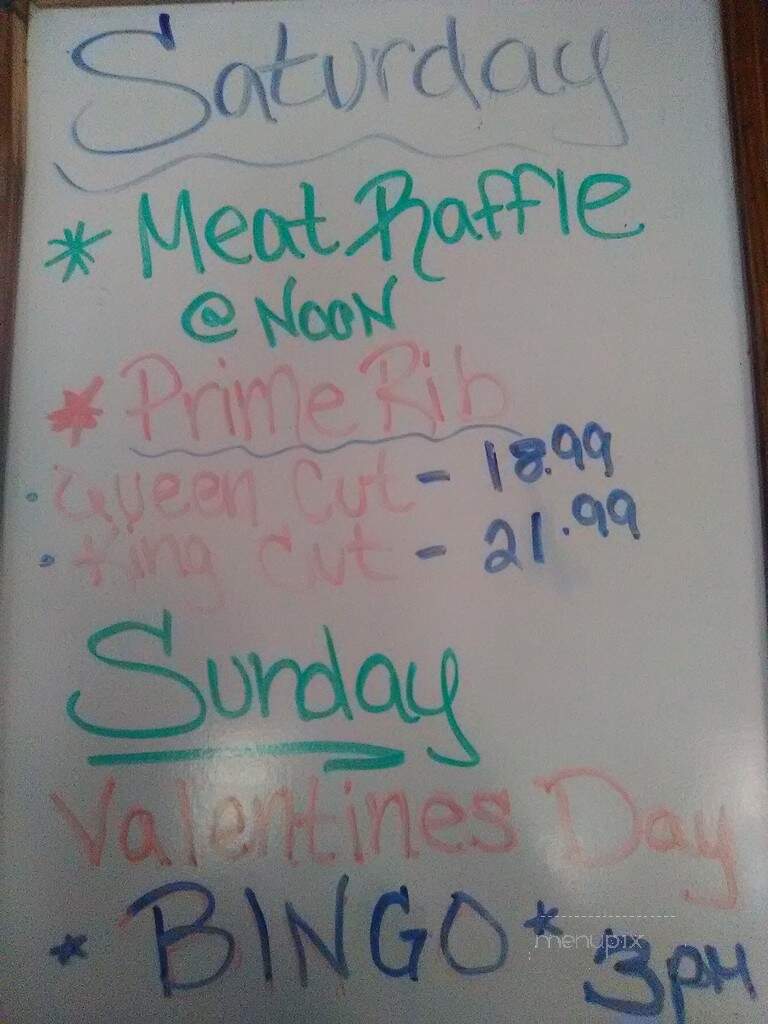 Saturday
* Meat Raffle
@ NOON
* Prime Rib
• Queen Cut - 18.99
• King Cut - 21.99
Sunday
Valentines Day
* BINGO * 3pM
menupix